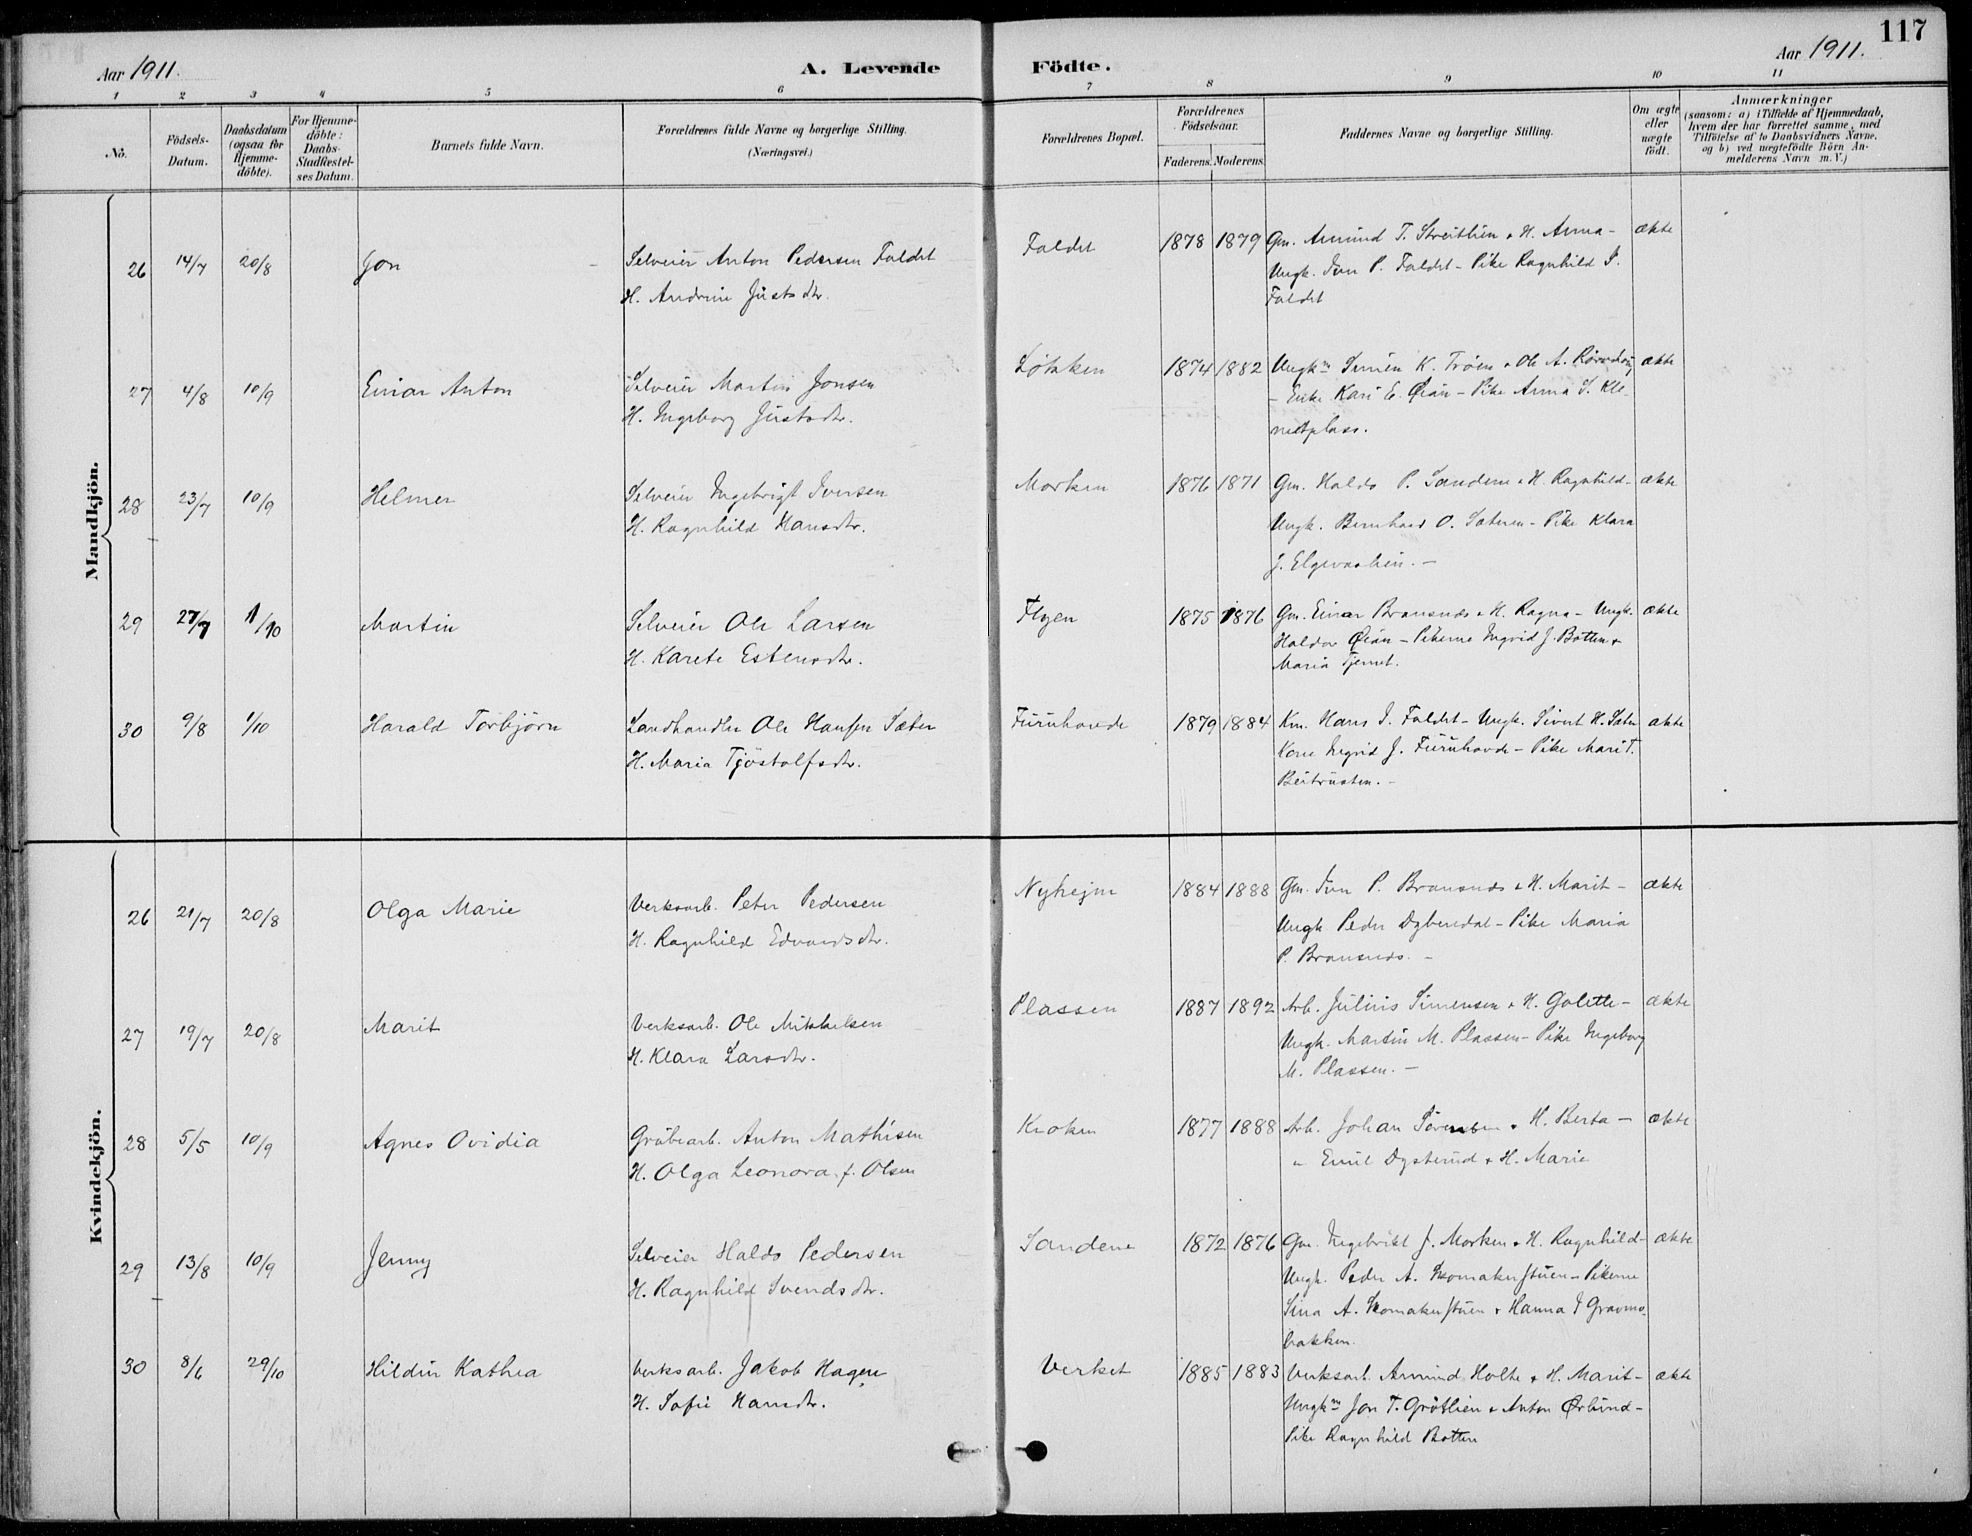 117
Aar 1911.
A. Levende Födte.
Aar 1911.
1 2 3 4 5 6 7 8 9 10 11
No.
Födsels-Datum.
Daabsdatum (ogsaa for Hjemme-döbte).
For Hjemme-döbte: Daabs-Stadfæstel-ses Datum.
Barnets fulde Navn.
Forældrenes fulde Navne og borgerlige Stilling.
(Næringsvei.)
Forældrenes Bopæl.
Forældrenes Födselsaar.
Faderens. Moderens.
Faddernes Navne og borgerlige Stilling.
Om ægte eller uægte födt.
Anmærkninger
(saasom: a) i Tilfælde af Hjemmedaab,
hvem der har forrettet samme, med
Tilföielse af to Daabsvidners Navne,
og b) ved uægtefödte Börn An-
melderens Navn m. V.)
Mandkjön.
26 14/7 20/8 Jon Selveier Anton Pedersen Foldet Foldet 1878 1879 Gm. Amund T. Streitlien & H. Anna- ækte
H. Andrine Justsdtr. Ungk. Iver P. Foldet - Pike Ragnhild I.
Foldet
27 4/8 10/9 Einar Anton Selveier Martin Jonsen Løkken 1874 1882 Ungkm Simen K. Trøen & Ole A. ækte
H. Ingeborg Justsdtr. - Enke Kari E. Øian - Pike Anna S. Kle-
netplass.
28 23/7 10/9 Helmer Selveier Ingebrigt Iversen Morken 1876 1871 Gm. Haldo P. Sandene & H. Ragnhild- ækte
H. Ragnhild Hansdtr. Ungk. Bernhard O. Sateren - Pike Klara
J. Elgevaslien. -
29 27/7 1/10 Martin Selveier Ole Larsen Flyen 1875 1876 Gm. Einar Bransnes & H. Ragna - Ungk. ækte
H. Karete Estensdtr. Haldor Øian - Pikerne Ingrid J. Botten &
Maria Tjernet.
30 9/8 1/10 Harald Torbjörn Landhandler Ole Hansen Sæter Furuhovde 1879 1884 Km. Hans I. Foldet - Ungk. Sivert H. Sæter ækte
H. Maria Tjöstolfsdtr. Kone Ingrid J. Furuhovde - Pike Mari T.
Beitrusten. -
Kvindekjön.
26 21/7 20/8 Olga Marie Verksarb. Peter Pedersen Nyhejm 1884 1888 Gm. Iver P. Bransnes & H. Marit - ækte
H. Ragnhild Edvardsdtr. Ungk Peder Dybendal - Pike Maria
P. Bransnes. -
27 19/7 20/8 Marit Verksarb. Ole Mikkelsen Plassen 1887 1892 Arb. Julius Simensen & H. Golette - ækte
H. Klara Larsdtr. Ungk. Martin M. Plassen - Pike Ingeborg
M. Plassen. -
28 5/5 10/9 Agnes Ovidia Grubearb. Anton Mathisen Kroken 1877 1888 Arb. Johan Sörensen & H. Berta - ækte
H. Olga Leonora f. Olsen " Emil Dysterud & H. Marie
29 13/8 10/9 Jenny Selveier Haldo Pedersen Sandene 1872 1876 Gm. Ingebrikt J. Morken & H. Ragnhild- ækte
H. Ragnhild Svendsdtr. Ungk. Peder A. Skomakerstuen - Pikerne
Sina A. Skomakerstuen & Hanna I Gravmo-
bakken.
30 8/6 29/10 Hildur Kathea Verksarb. Jakob Hagen Verket 1885 1883 Verksarb. Amund Holte & H. Marit - ækte
H. Sofie Hansdtr. Ungkm Jon T. Grötlien & Anton Ørlund -
Pike Ragnhild Botten